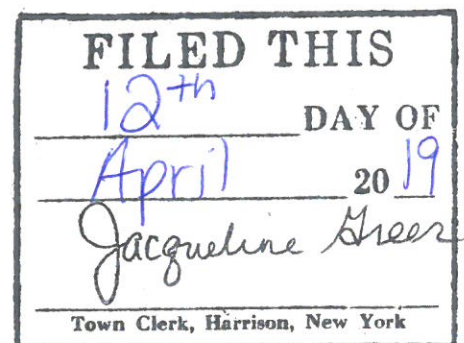 FILED THIS
12th DAY OF
April 20 19
Jacqueline Greer
Town Clerk, Harrison, New York